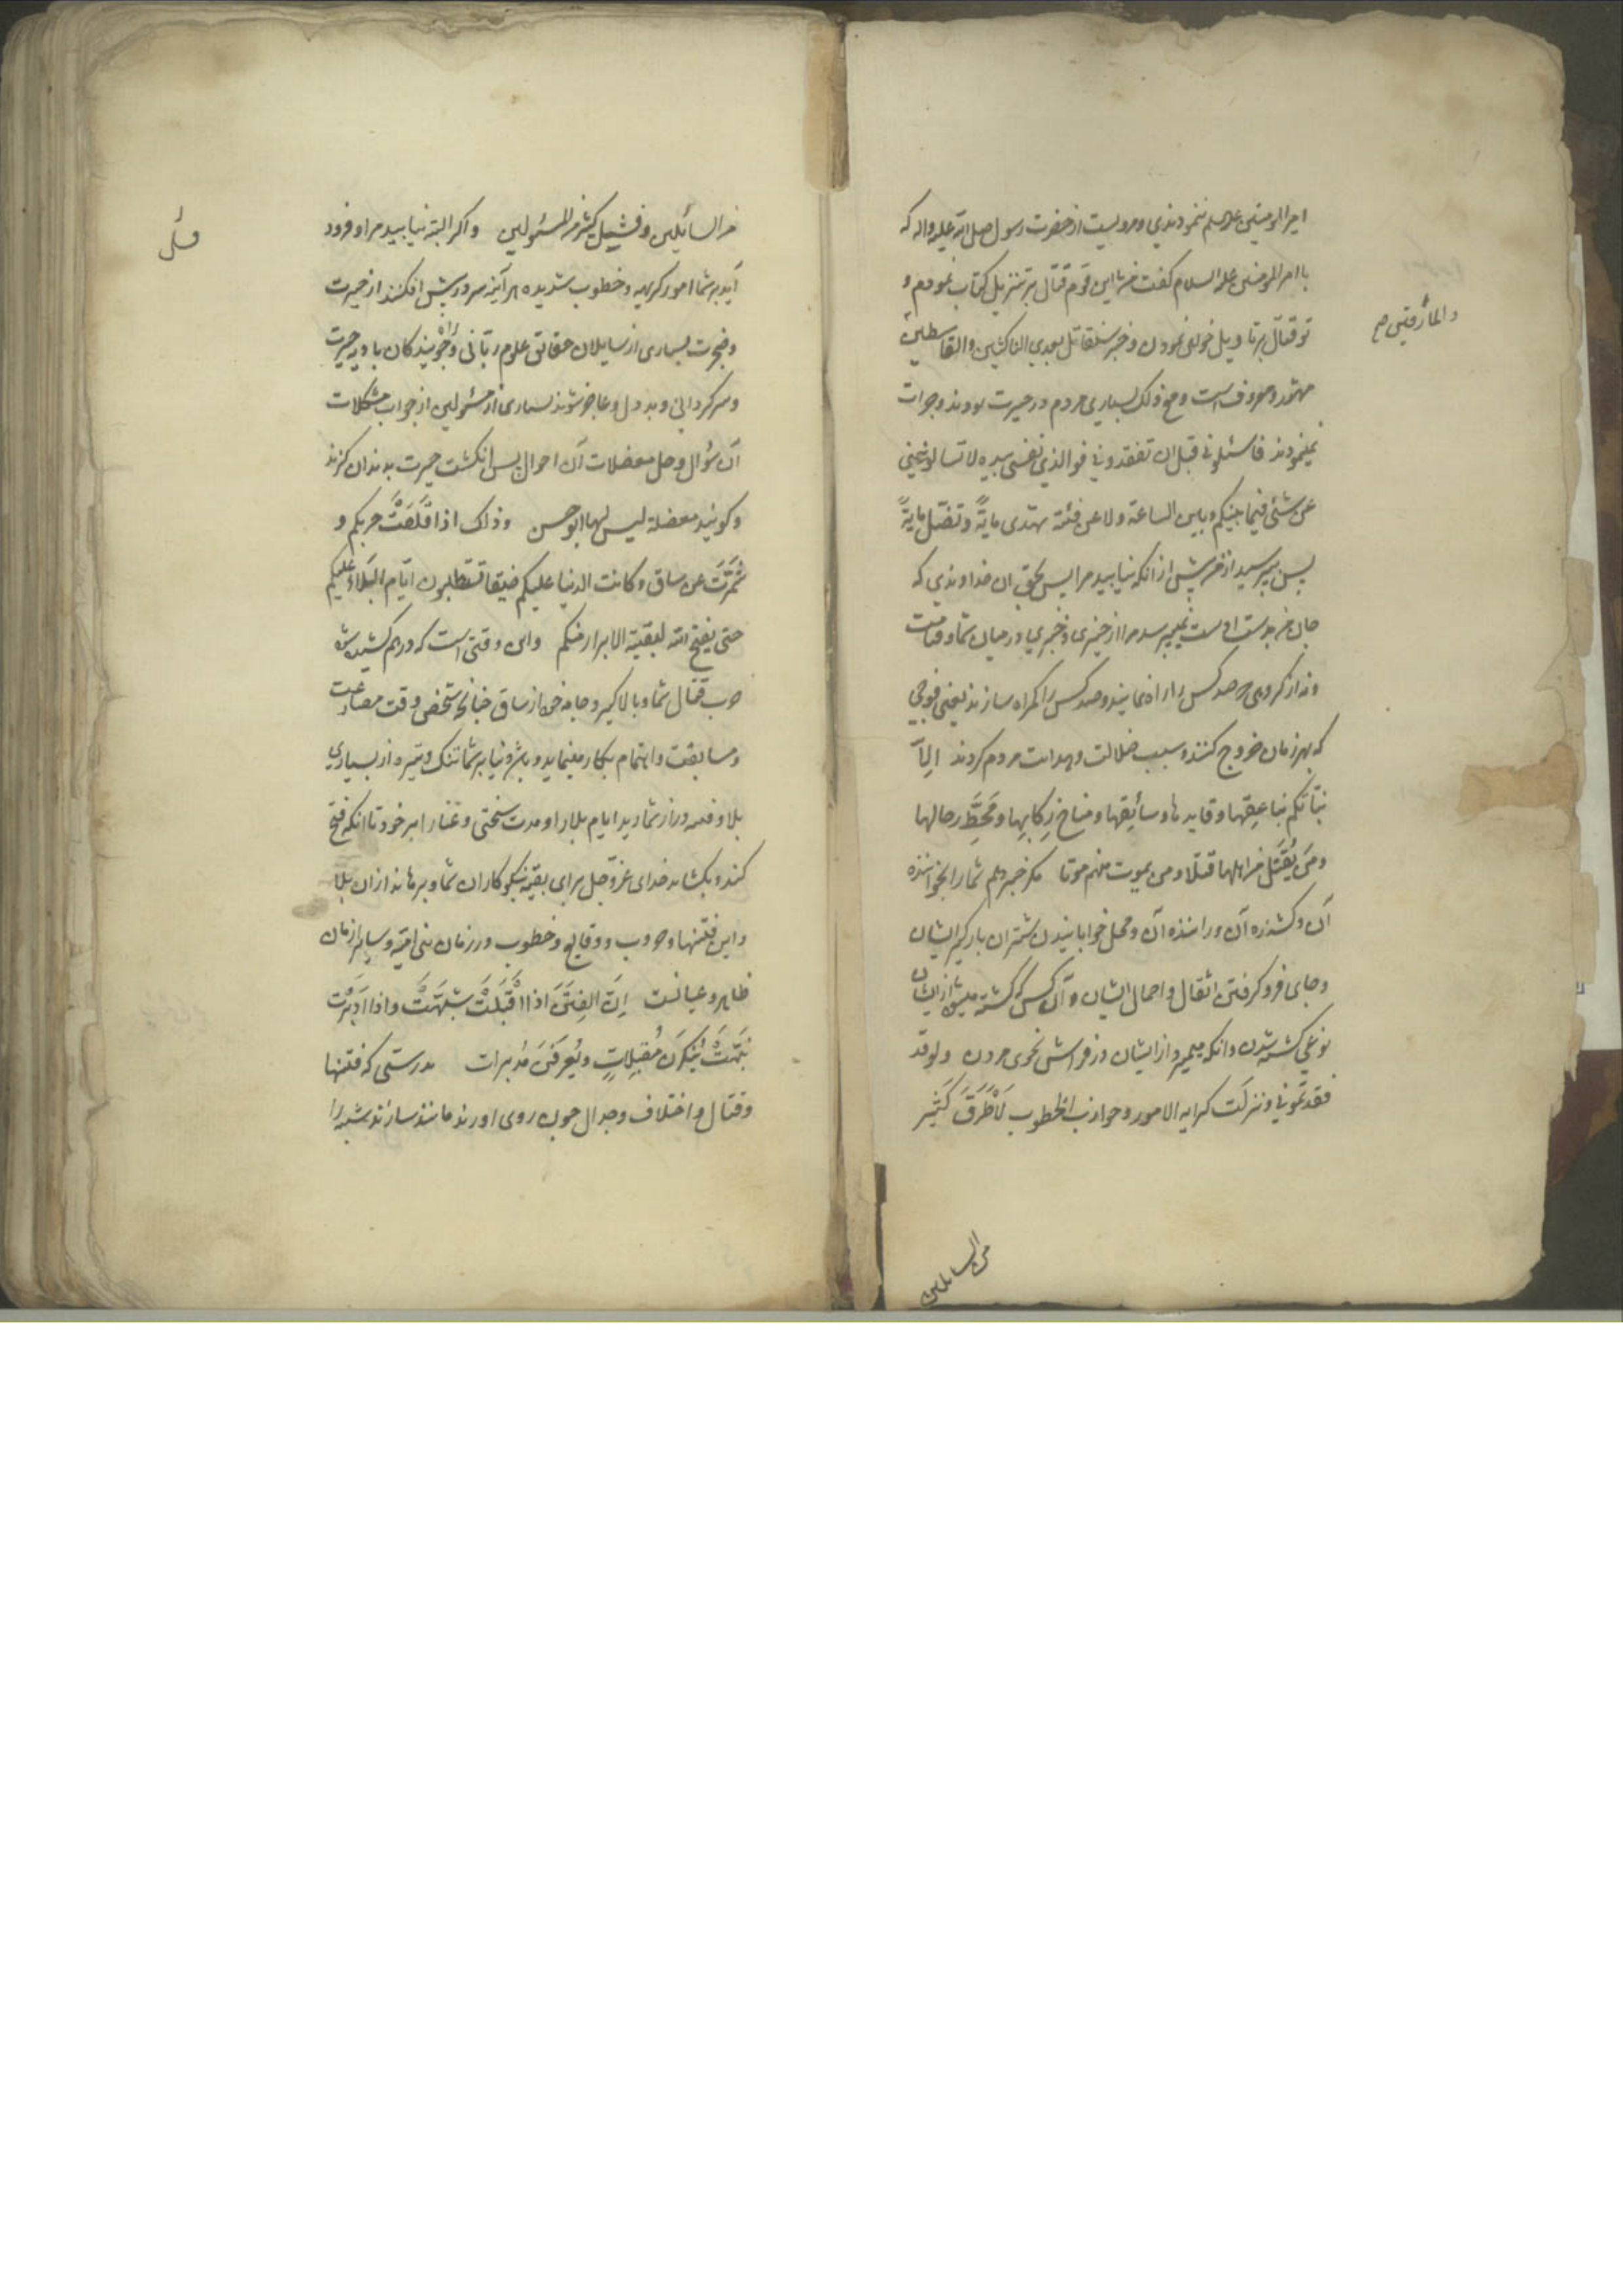 امیرالمومنین علیه السلم ننمودندی و مرویست از حضرت رسول صلی الله علیه واله که
با امیرالمومنین علیه السلام گفت من با این قوم قتال بر تنزیل کتاب نمودم و
تو قتال بر تاویل خواهی نمودن و خبر ستقاتل بعدی الناکثین والقاسطین
والمارقین صح
مشهور و معروف است و مع ذلک بسیاری مردم در حیرت بودند و جرات
نمینمودند فاسئلونی قبل ان تفقدونی فوالذی نفسی بیده لا تسالوننی
عن شئی فیما بینکم وبین الساعة ولا عن فئة تهتدی مایةً وتضل مایةً
پس بپرسید از من پیش از انکه نیابید مرا پس بحق ان خداوندی که
جان من بدست اوست نمیپرسید مرا از چیزی و خبری در میان شما و قیامت
و نه از گروهی که صد کس را راه نمایند و صد کس را گمراه سازند یعنی فوجی
که بهر زمان خروج کنند و سبب ضلالت و هدایت مردم گردند اِلّا
نبّأتکم بناعِقها وقایدها وسائِقها ومناخ رِکابِها ومَحَطَّ رحالها
ومَن یُقتَل من اهلها قتلا ومن یموت منهم موتا مگر خبر دهم شما را بخواننده
آن و کشنده آن و راننده آن و محل خوابانیدن شتران بارگیر ایشان
و جای فرو گرفتن اثقال و احمال ایشان و آن کس که کشته میشود از ایشان
نوعی کشته شدن و انکه میمیرد از ایشان در فراش نحوی مردن ولو قد
فقدتمونی ونزلت کرایه الامور وحوازب الخطوب لَاَطرَقَ کَثیر
من السایلین
من السائلین وفشل کثیر من المسئولین و اگر البته نیابید مرا و فرود
آید بر شما امور کریهه و خطوب شدیده هر آینه سر در پیش افکنند از حیرت
و ضجرت بسیاری از سایلان حقائق علوم ربّانی و جویندگان بادیه حیرت
و سرگردانی و بد دل و عاجز شوند بسیاری از مسئولین از جواب مشکلات
آن سؤال و حل معضلات آن احوال پس انگشت حیرت بدندان گزند
و گویند معضلة لیس لها ابو حسن وذلک اذا قَلَّصَتْ حربکم و
شَمَّرَتْ عن ساق وکانت الدنیا علیکم ضیقا تستطلبون ایّام البَلاء علیکم
حتی یفتح الله لبقیة الابرار منکم و این وقتی است که درهم کشیده شود
حرب و قتال شما و بالا گیرد جامه خود از ساق چنانچه شخصی وقت مصارعت
و مسابقت و اهتمام بکار مینماید و باشد دنیا بر شما تنگ و تیره از بسیاری
بلا و فتنه دراز شمارید ایام بلا را و مدت سختی و عنا را بر خود تا انکه فتح
کند و بگشاید خدای عزّوجل برای بقیه نیکوکاران شما و برهاند از ان بلا
و این فتنها و حروب و وقایع و خطوب در زمان بنی امیّه و سایر ازمان
ظاهر و عیانست اِنَّ الفِتَنَ اذا اَقْبَلَتْ شبَّهَتْ واذا اَدْبَرَتْ
نَبَّهَتْ یُنکَرنَ مُقبِلاتٍ ویُعرَفنَ مُدبرات بدرستی که فتنها
و قتال و اختلاف و جدال چون روی اورند مانند سازند شبه را